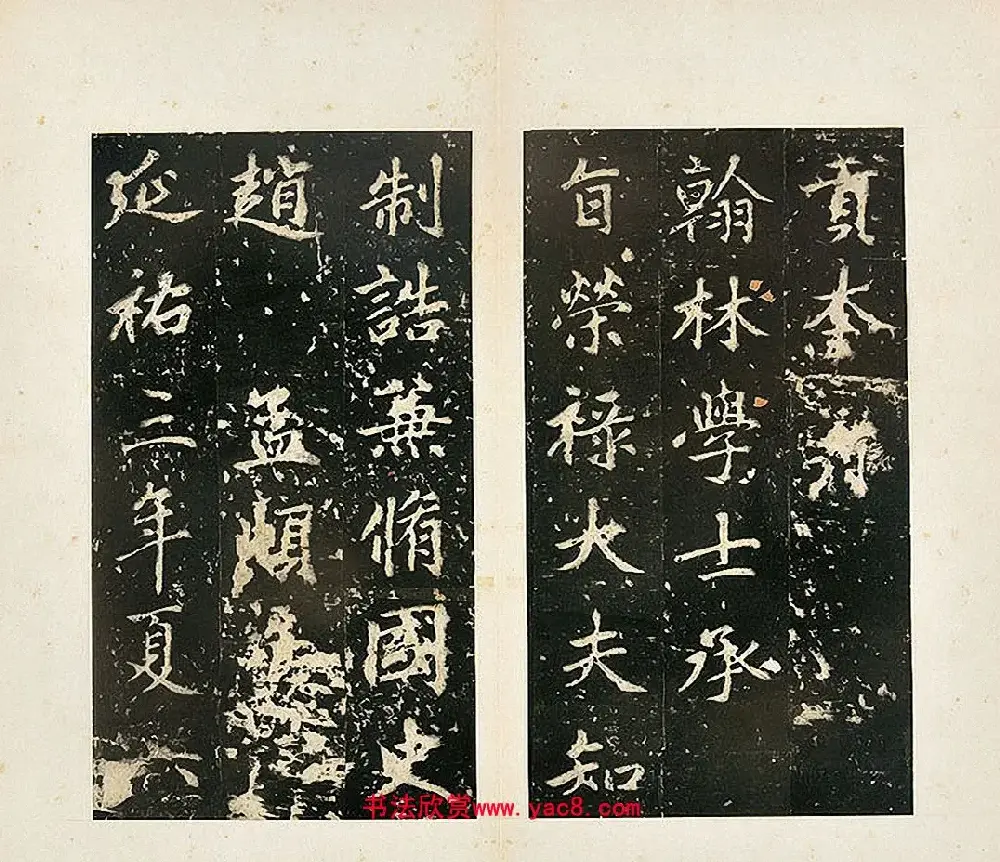 貢奎
翰林學士承
旨榮祿大夫知
制誥兼脩國史
趙孟頫
延祐三年夏六
书法欣赏www.yac8.com